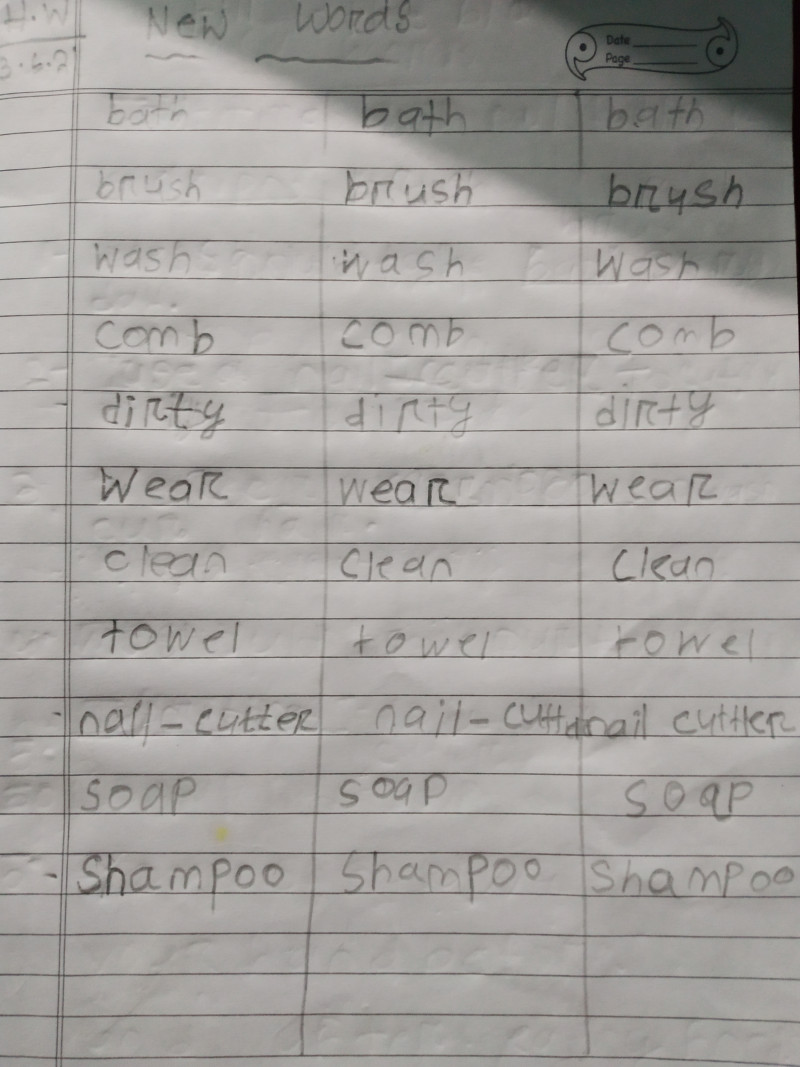 H.W New Words
3.6.21 Date
Page
bath bath bath
brush brush brush
wash wash wash
comb comb comb
dirty dirty dirty
Wear wear wear
clean clean clean
towel towel towel
nail-cutter nail-cutter nail cutter
soap soap soap
Shampoo Shampoo Shampoo